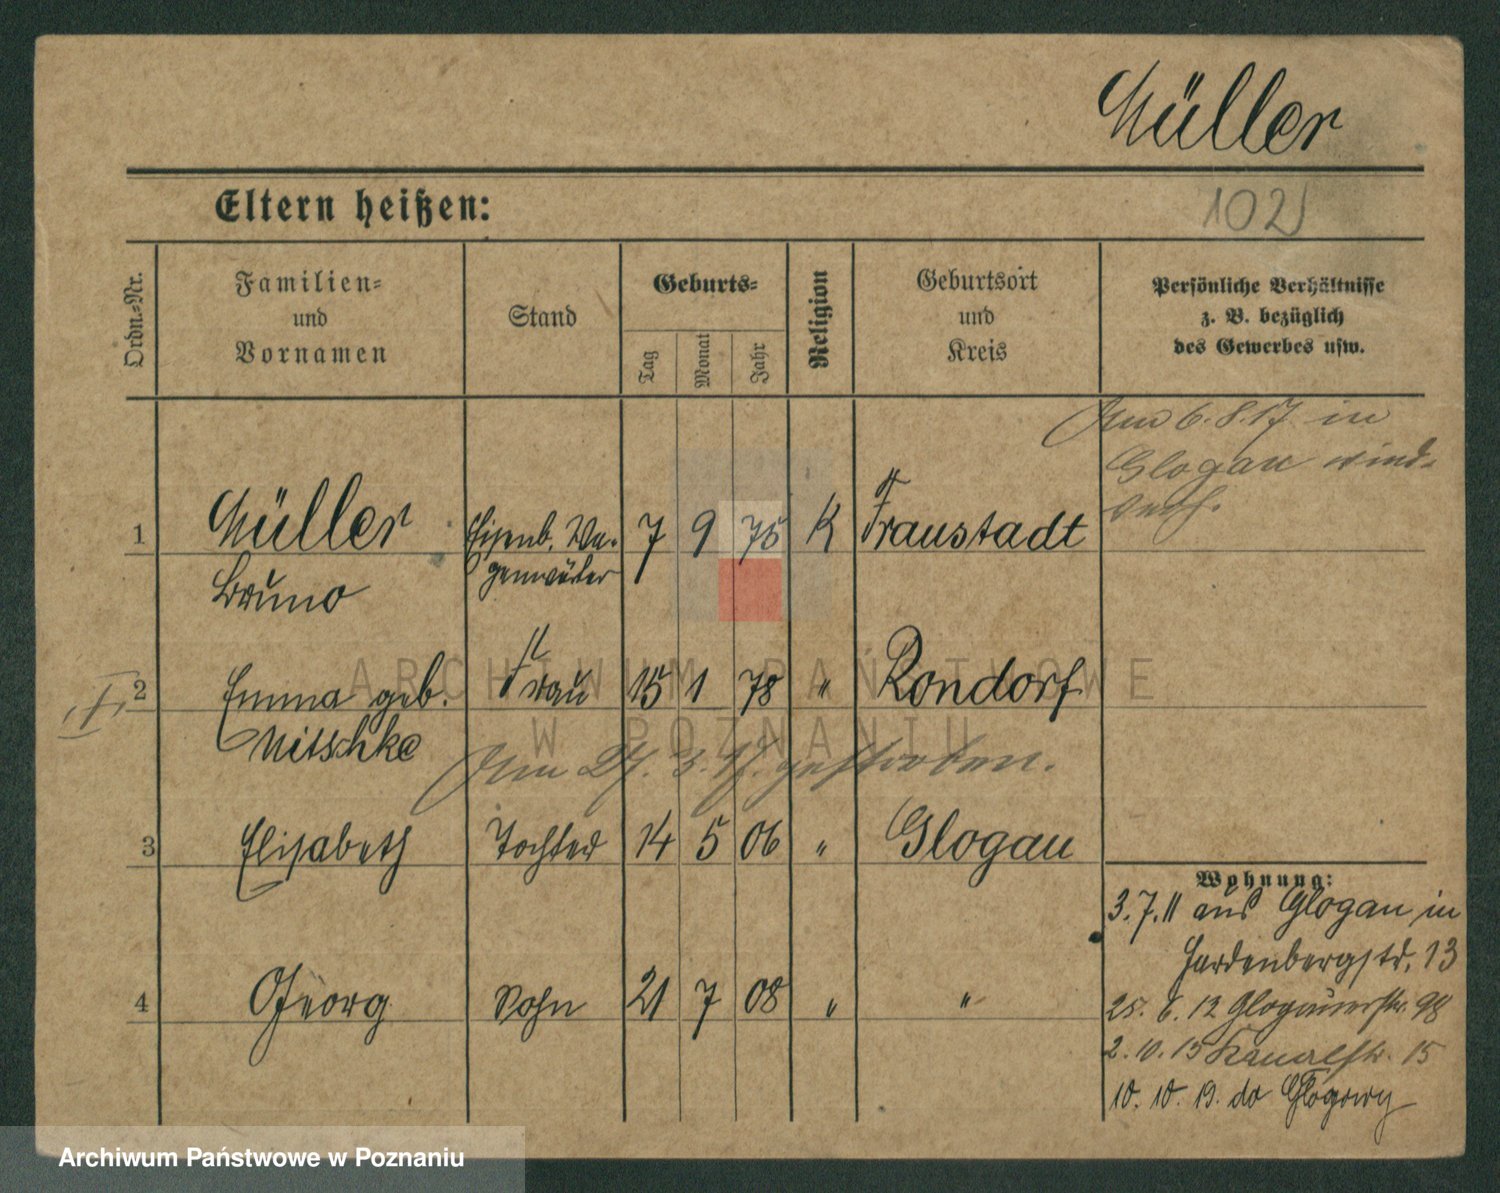 Müller
Eltern heißen:
102
Ordn.-Nr.
Familien-
und
Vornamen
Stand
Geburts-
Tag
Monat
Jahr
Religion
Geburtsort
und
Kreis
Persönliche Verhältnisse
z. B. bezüglich
des Gewerbes usw.
Am 6. 8. 17 in
Glogau wieder
verh.
1 Müller Eisenb. Wa- 7 9 75 K Fraustadt
Bruno genwärter
2 Emma geb. Frau 15 1 78 " Rondorf
Nitschke
Am 27. 3. 17. gestorben.
3 Elisabeth Tochter 14 5 06 " Glogau
4 Georg Sohn 21 7 08 " "
Wohnung:
3. 7. 11 aus Glogau in
Hardenbergstr. 13
25. 6. 12 Glogauerstr. 98
2. 10. 15 Kanalstr. 15
10. 10. 19. do Głogowy
ARCHIWUM PAŃSTWOWE
W POZNANIU
Archiwum Państwowe w Poznaniu